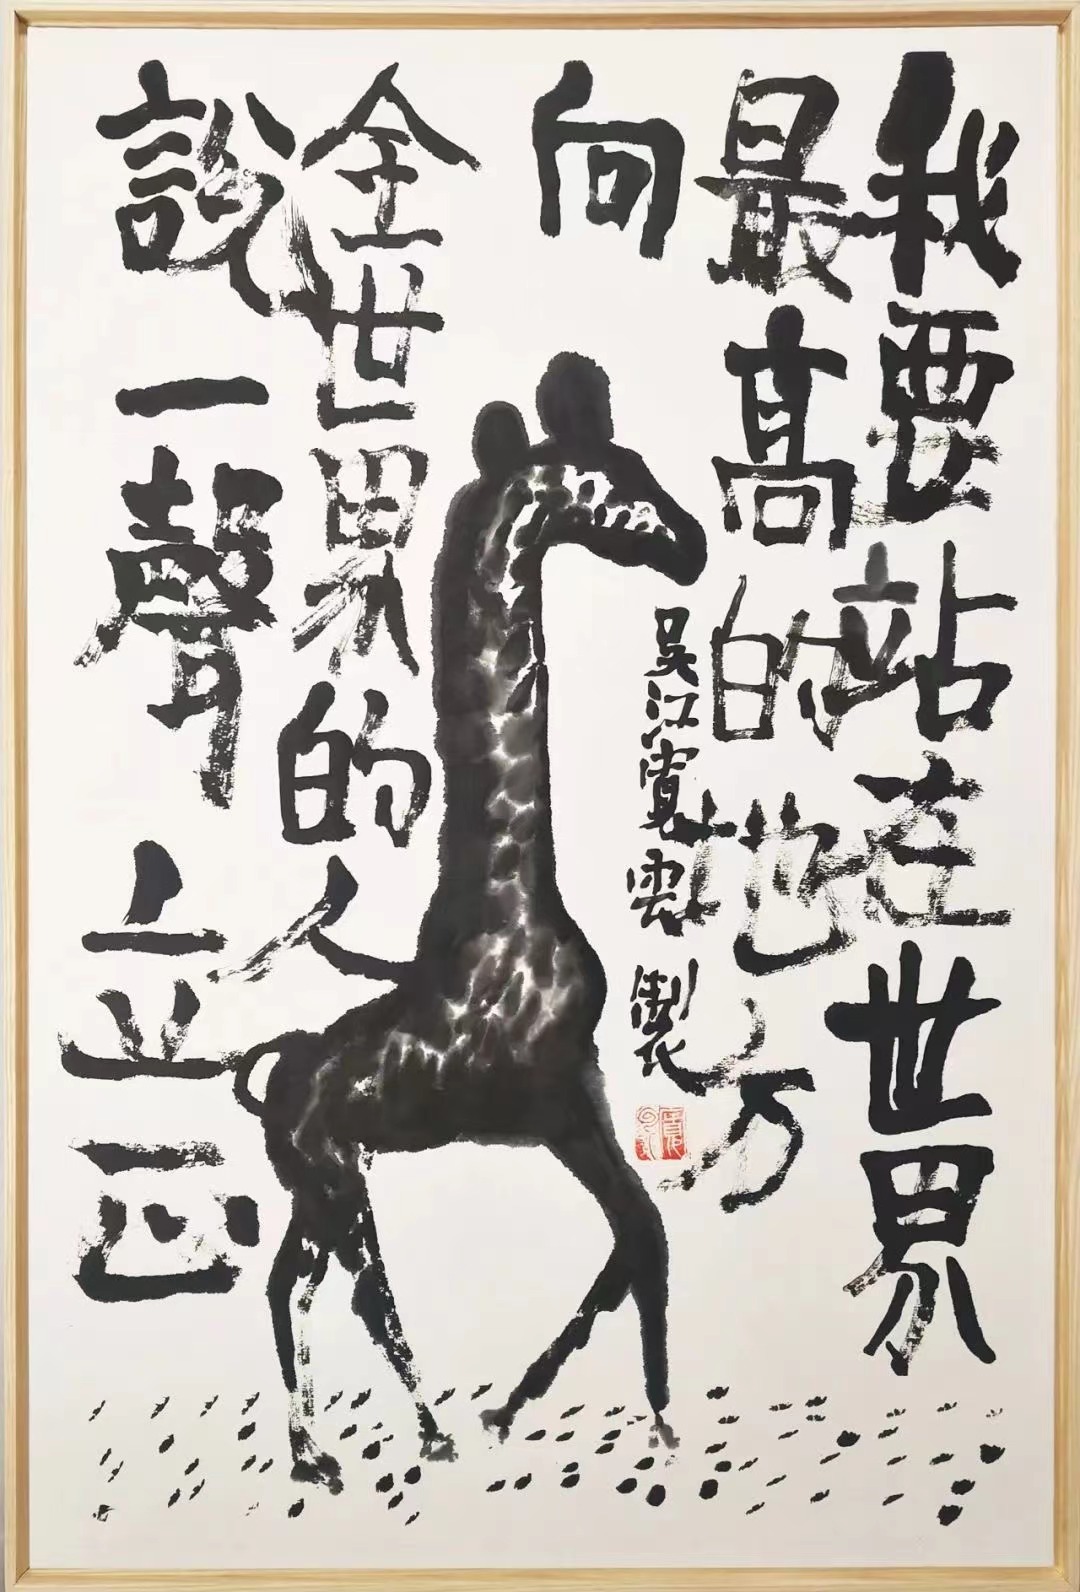 我要站在世界
最高的地方
向
全世界的人
說一聲立正
吳江寬雲製